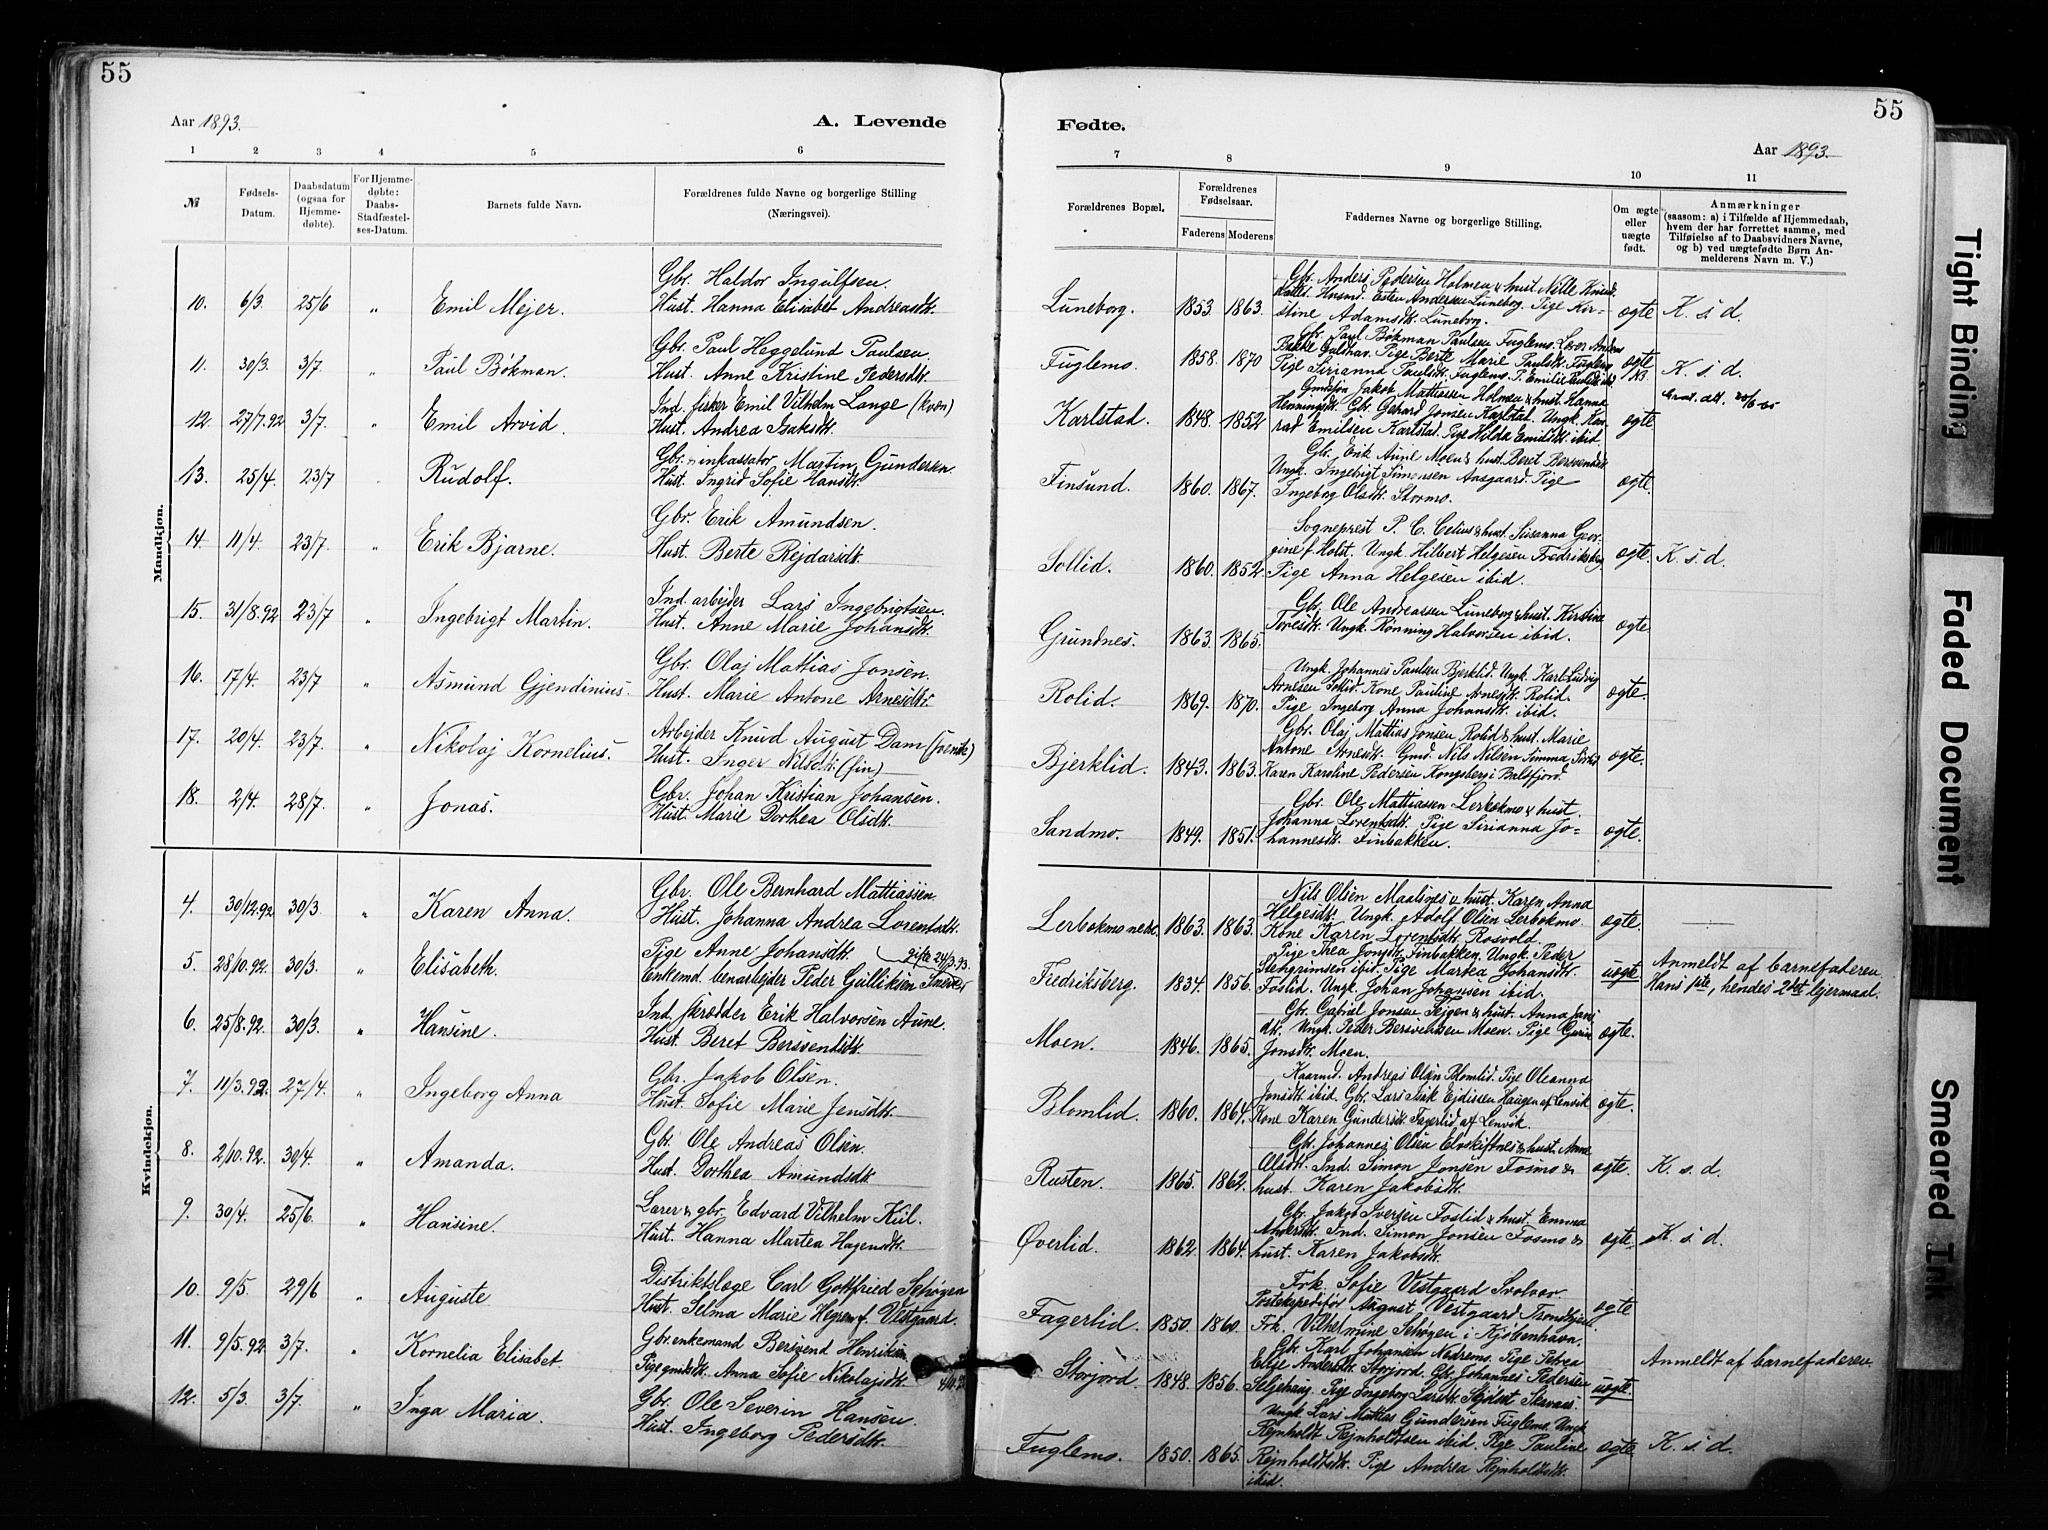 55
55
Aar 1893.
A. Levende
Fødte.
Aar 1893.
1 2 3 4 5 6
7 8 9 10 11
№
Fødsels-Datum.
Daabsdatum (ogsaa for Hjemmedøbte).
For Hjemmedøbte: Daabs-Stadfæstelses-Datum.
Barnets fulde Navn.
Forældrenes fulde Navne og borgerlige Stilling (Næringsvei).
Forældrenes Bopæl.
Forældrenes Fødselsaar.
Faderens Moderens
Faddernes Navne og borgerlige Stilling.
Om ægte eller uægte født.
Anmærkninger
(saasom: a) i Tilfælde af Hjemmedaab, hvem der har forrettet samme, med Tilføielse af to Daabsvidners Navne, og b) ved uægtefødte Børn Anmelderens Navn m. V.)
Mandkjøn.
10. 6/3. 25/6 " Emil Mejer.
Gbr. Haldor Ingulfsen.
Hust. Hanna Elisabet Andreasdtr.
Luneborg. 1853 1863.
Gbr. Anders Pedersen Holmen & hust. Nille Knud
Husmd. Esten Andersen Luneborg. Pige Kir-
stine Adamsdtr. Luneborg.
ægte K. s. d.
11. 30/3. 3/7. " Paul Bökman.
Gbr. Paul Heggelund Paulsen.
Hust. Anne Kristine Pedersdtr.
Fuglemo. 1858. 1870
Gbr. Paul Bökman Paulsen Fuglemo. Lærer Anders
Bakke Guldhav. Pige Berte Marie Paulsdtr. Fuglemo
Pige Sirianna Paulsdtr. Fuglemo. P. Emilie Paulsdtr. ibid
ægte K. s. d.
12. 27/7.92 3/7. " Emil Arvid.
Ind. fisker Emil Vilhelm Lange (kvæn)
Hust. Andrea Isaksdtr.
Karlstad. 1848. 1852
Jakob Mattiassen Holmen & hust. Hanna
Henningsdtr. Gbr. Gerard Jonsen Karlstal. Ungk. Kon-
rad Emilsen Karlstad. Pige Hilda Emilsdtr. ibid.
ægte
13. 25/4. 23/7 Rudolf.
Gbr. & inkassator Martin Gundersen
Hust. Ingrid Sofie Hansdtr.
Finsund. 1860. 1867.
Gbr. Erik Aune Moen & hust. Beret Bersvendsdtr
Ungk. Ingebrigt Simonsen Aasgaard. Pige
Ingeborg Olsdtr. Stormo.
ægte.
14. 11/4. 23/7. " Erik Bjarne.
Gbr. Erik Amundsen.
Hust. Berte Rejdarsdtr.
Sollid. 1860. 1852.
Sogneprest P. C. Celius & hust. Susanna Geor-
gine f. Holst. Ungk. Hilbert Helgesen Fredriksberg
Pige Anna Helgesen ibid.
ægte. K. s. d.
15. 31/8.92 23/7 " Ingebrigt Martin.
Ind. arbejder Lars Ingebrigtsen.
Hust. Anne Marie Johansdtr.
Grundnes. 1863. 1865.
Gbr. Ole Andreassen Luneborg & hust. Kirstine
Toresdtr. Ungk. Rønning Halvorsen ibid.
ægte
16. 17/4. 23/7 " Asmund Gjendinius.
Gbr. Olaj Mattias Jonsen.
Hust. Marie Antone Arnesdtr.
Rolid. 1869. 1870.
Ungk. Johannes Paulsen Bjerklid. Ungk. Karl Ludvig
Arnesen Sollid. Kone Pauline Arnesdtr. Rolid.
Pige Ingeborg Anna Johansdtr. ibid.
ægte.
17. 20/4. 23/7. " Nikolaj Kornelius.
Arbejder Knud August Dam (svensk)
Hust. Inger Nilsdtr. (fin)
Bjerklid. 1843. 1863.
Gbr. Olaj Mattias Jonsen Rolid & hust. Marie
Antone Arnesdtr. Gmd. Nils Nilsen
Karen Karoline Pedersen Kongsberg i Balsfjord.
ægte.
18. 2/4. 28/7. " Jonas.
Gbr. Johan Kristian Johansen.
Hust. Marie Dorthea Olsdtr.
Sandmo. 1849. 1851.
Gbr. Ole Mattiassen Lerbækmo & hust.
Johanna Lorentsdtr. Pige Sirianna Jo-
hannesdtr. Finbakken.
ægte.
Kvindekjøn.
4. 30/12.92 30/3. " Karen Anna.
Gbr. Ole Bernhard Mattiassen.
Hust. Johanna Andrea Lorentsdtr.
Lerbækmo nedre. 1863. 1863.
Nils Olsen Maalsnes & hust. Karen Anna
Helgesdtr. Ungk. Adolf Olsen Lerbækmo.
Kone Karen Lorentsdtr. Rosvold.
ægte.
5. 28/10.92. 30/3. " Elisabeth.
Pige Anne Johansdtr. gifte 24/3.93.
Enkemd. Peder Gulliksen
Fredriksberg. 1834. 1856.
Pige Thea Jonsdtr. Finbakken. Ungk. Peder
Stengrimsen ibid. Pige Martea Johansdtr.
Foslid. Ungk. Johan Johansen ibid.
uægte Anmeldt af barnefaderen
Hans 1ste, hendes 2det lejermaal.
6. 25/8.92. 30/3. " Hansine.
Ind. skrædder Erik Halvorsen Aune.
Hust. Beret Bersvendsdtr.
Moen. 1846. 1865.
Gbr. Gabriel Jonsen Teigen & hust. Anna Jans
dtr. Ungk. Peder Bersvendsen Moen. Pige Gurine
Jonsdtr. Moen.
ægte.
7. 11/3.92. 27/4. " Ingeborg Anna
Gbr. Jakob Olsen.
Hust. Sofie Marie Jensdtr.
Blomlid. 1860. 1864.
Kaarmd. Andreas Olsen Blomlid. Pige Oleanna
Jonsdtr. ibid. Gbr. Lars Erik Ejdissen Haugen af Lenvik
Kone Karen Gundersdtr. Fagerlid af Lenvik.
ægte.
8. 2/10.92. 30/4. " Amanda.
Gbr. Ole Andreas Olsen.
Hust. Dorthea Amundsdtr.
Rusten. 1865. 1862.
Gbr. Johannes Olsen Elvskiftnes & hust. Anne
Olsdtr. Ind. Simon Jonsen Fosmo &
hust. Karen Jakobsdtr.
ægte. K. s. d.
9. 30/4. 25/6. " Hansine.
Lærer & gbr. Edvard Vilhelm Kiil.
Hust. Hanna Martea Hagensdtr.
Øverlid. 1862. 1864.
Gbr. Jakob Iversen Foslid & hust. Emma
Ind. Simon Jonsen Fosmo &
hust. Karen Jakobsdtr.
ægte. K. s. d.
10. 9/5. 29/6 " Auguste
Distriktslæge Carl Gottfried Schøyen
Hust. Selma Marie Hegrem f. Vestgaard.
Fagerlid. 1850. 1860.
Frk. Sofie Vestgaard Svolvær
Postekspeditør August Vestgaard Trondhjem
Frk. Vilhelmine Schøyen i Kjøbenhavn.
ægte
11. 9/5.92 3/7. " Kornelia Elisabet
Gbr. enkemand Bersvend Henriksen
Pige Anna Sofie Nikolajsdtr.
Storjord. 1848. 1856.
Gbr. Karl Johansen Nedremo. Pige Petrea
Elise Andersdtr. Storjord. Gbr. Johannes Pedersen
Seljehaug. Pige Ingeborg Larsdtr.
uægte. Anmeldt af barnefaderen
12. 5/3. 3/7. " Inga Maria.
Gbr. Ole Severin Hansen.
Hust. Ingeborg Pedersdtr.
Fuglemo. 1850. 1865.
Ungk. Lars Mattias Gundersen Fuglemo. Ungk
Rejnholdt Rejnholdtsen ibid. Pige Pauline
Rejnholdtsdtr. Pige Andrea Rejnholdtsdtr.
ibid.
ægte K. s. d.
Tight Binding
Faded Document
Smeared Ink